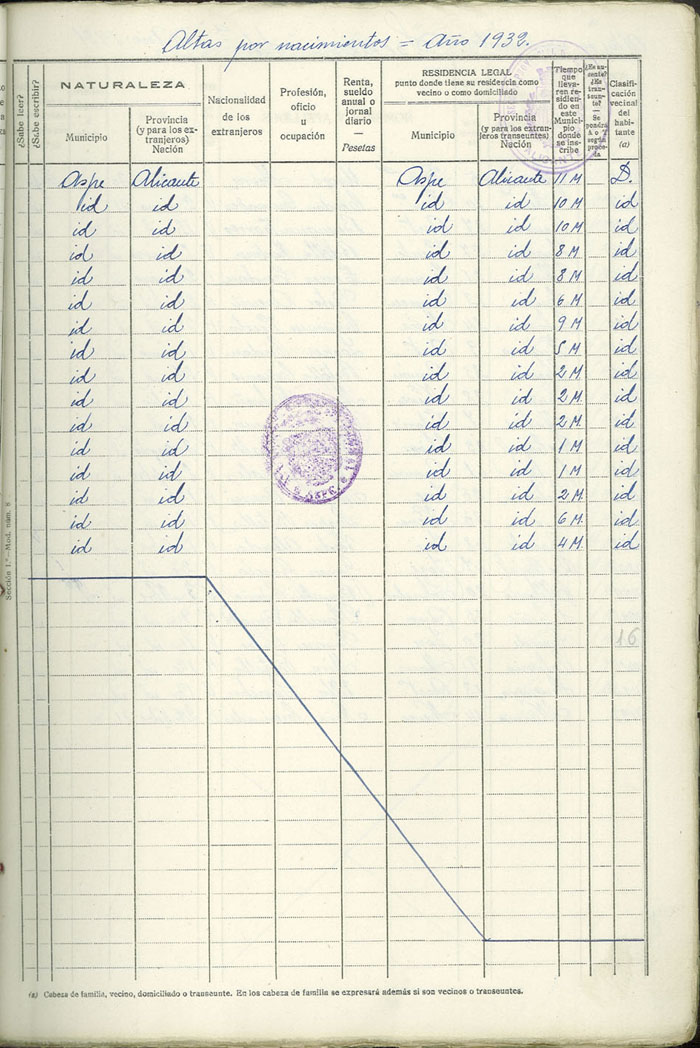 Altas por nacimientos = Año 1932.
¿Sabe leer?
¿Sabe escribir?
NATURALEZA
Municipio
Provincia (y para los extranjeros) Nación
Nacionalidad de los extranjeros
Profesión, oficio u ocupación
Renta, sueldo anual o jornal diario — Pesetas
RESIDENCIA LEGAL
punto donde tiene su residencia como vecino o como domiciliado
Municipio
Provincia (y para los extranjeros transeuntes) Nación
Tiempo que llevaren residiendo en este Municipio donde se inscribe
Clasificación vecinal del habitante (a)
Aspe Alicante Aspe Alicante 11 M D.
id id id id 10 M id
id id id id 10 M id
id id id id 8 M id
id id id id 8 M id
id id id id 6 M id
id id id id 9 M id
id id id id 5 M id
id id id id 2 M id
id id id id 2 M. id
id id id id 2 M id
id id id id 1 M id
id id id id 1 M id
id id id id 2 M id
id id id id 6 M. id
id id id id 4 M. id
ASPE
16
Sección 1.ª—Mod. núm. 8
(a) Cabeza de familia, vecino, domiciliado o transeunte. En los cabeza de familia se expresará además si son vecinos o transeuntes.